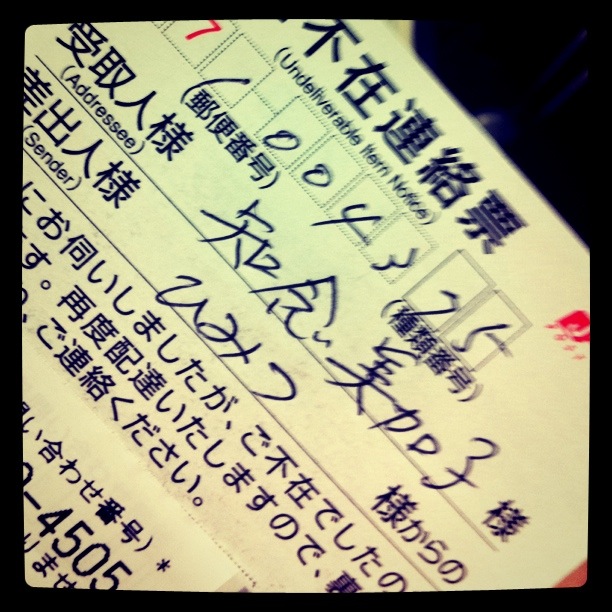 不在連絡票
(Undeliverable Item Notice)
7
(郵便番号)
1 0043
(種類番号)
75
受取人様
(Addressee)
知念 美加子 様
差出人様
(Sender)
ひみつ 様からの
にお伺いしましたが、ご不在でしたの
す。再度配達いたしますので、裏
ご連絡ください。
い合わせ番号) *
-4505
りませ